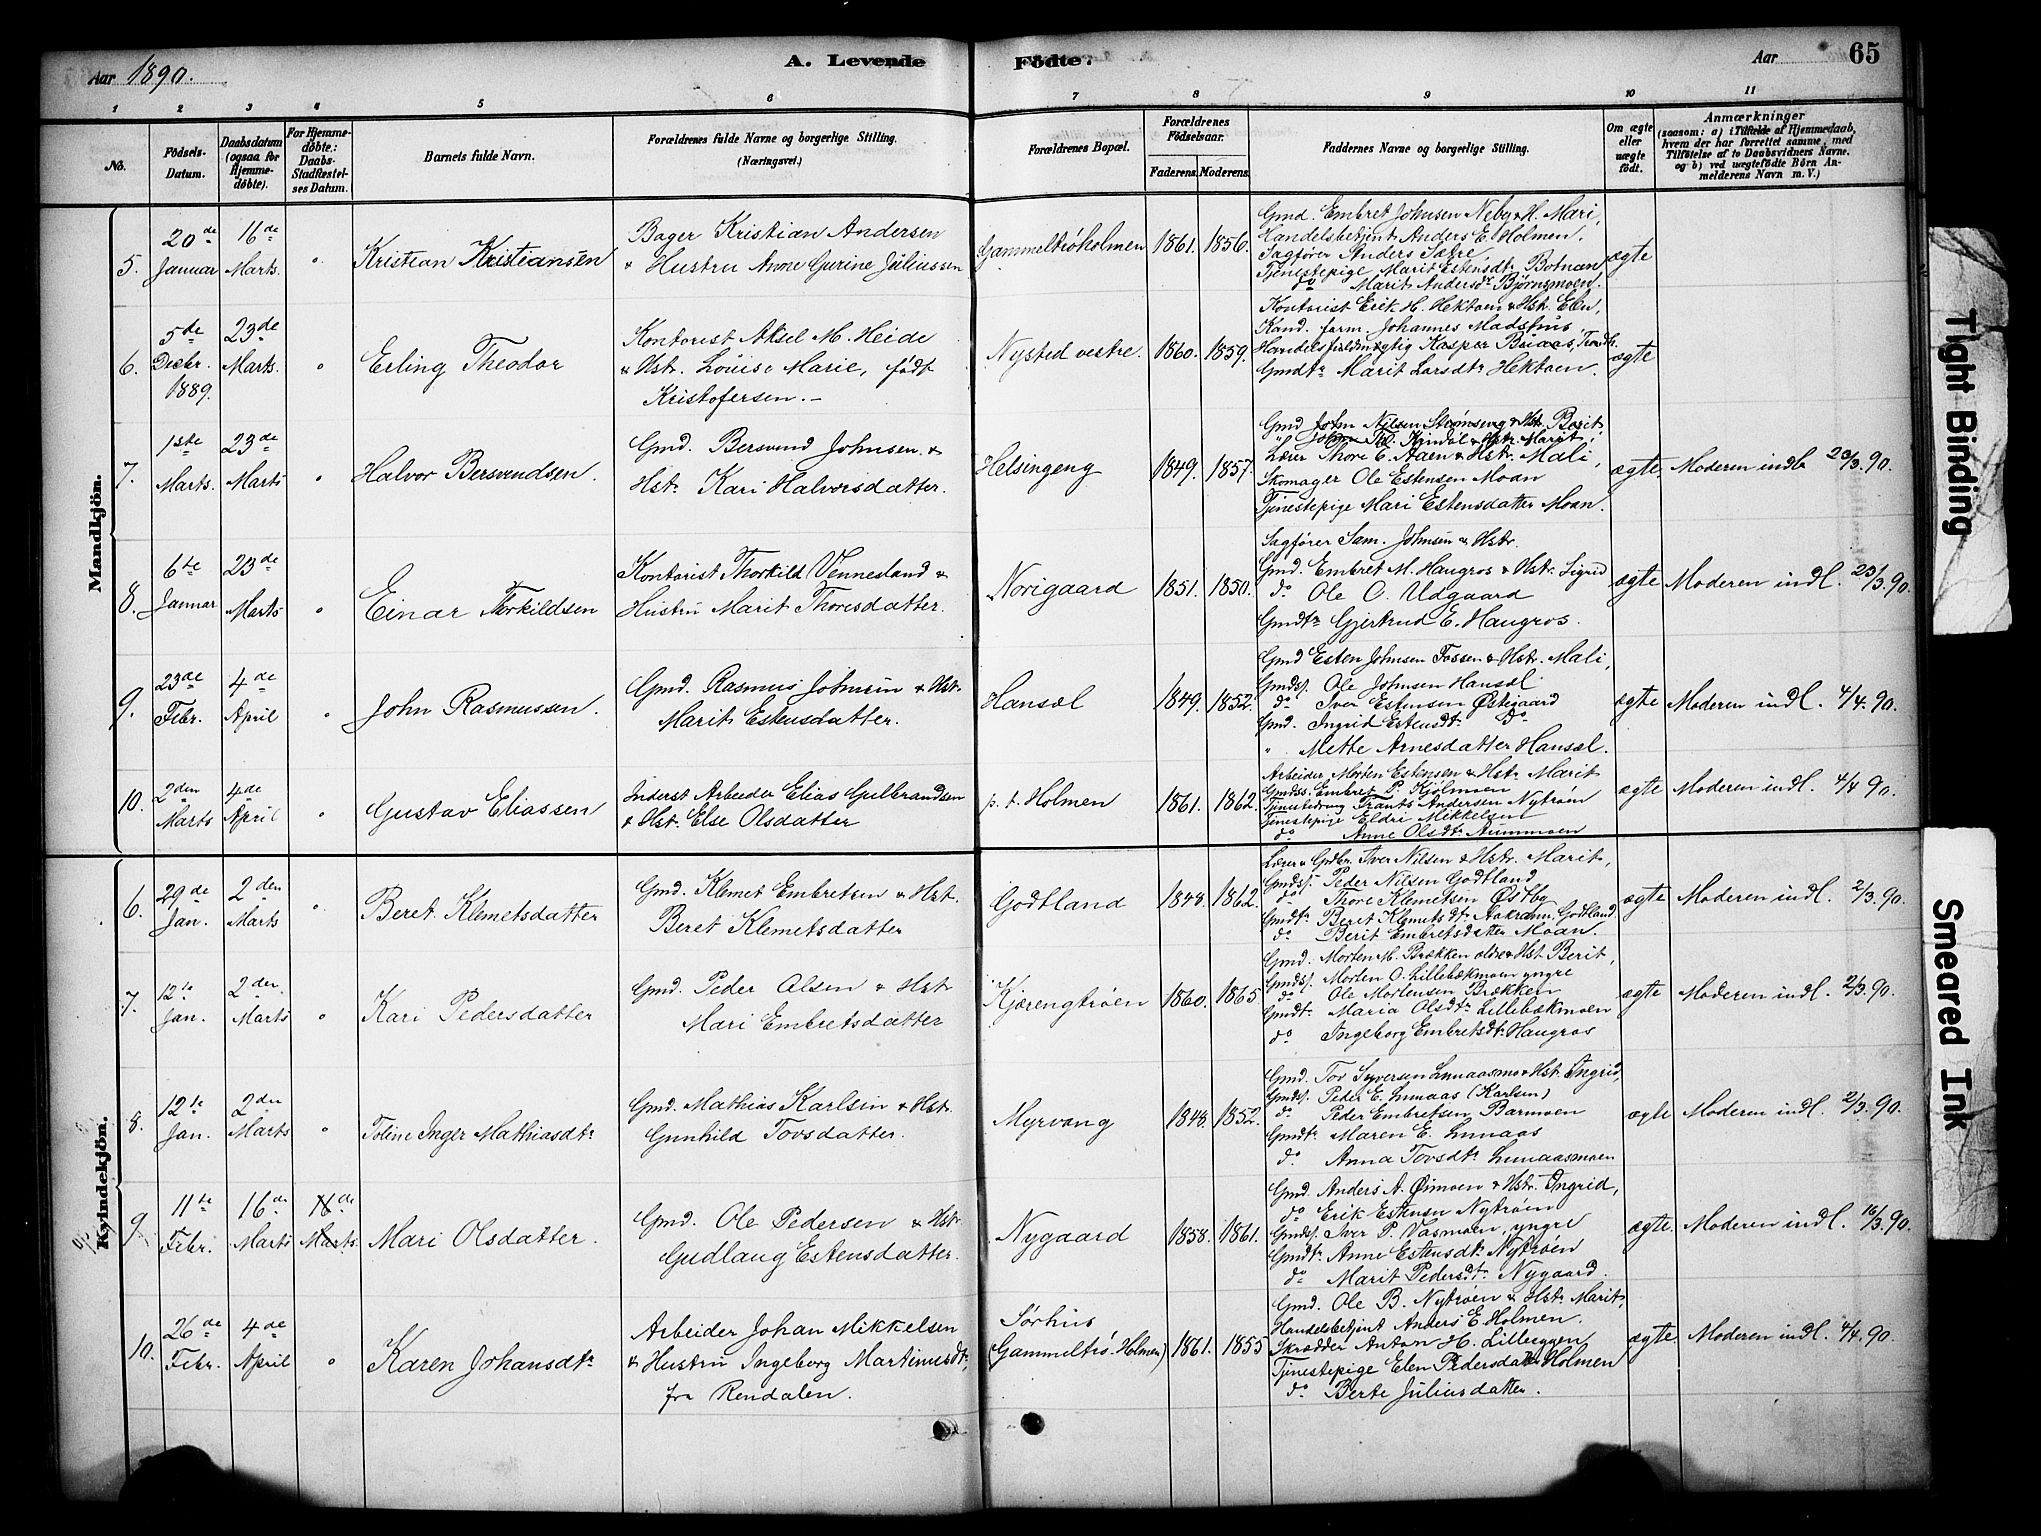 Aar 1890.
A. Levende Födte.
Aar
65
1 2 3 4 5 6 7 8 9 10 11
No.
Födsels-Datum.
Daabsdatum (ogsaa for Hjemmedöbte).
For Hjemmedöbte: Daabs-Stadfæstelses Datum.
Barnets fulde Navn.
Forældrenes fulde Navne og borgerlige Stilling. (Næringsvei.)
Forældrenes Bopæl.
Forældrenes Födselsaar.
Faderens. Moderens.
Faddernes Navne og borgerlige Stilling.
Om ægte eller uægte födt.
Anmærkninger
(saasom: a) i Tilfælde af Hjemmedaab, hvem der har forrettet samme, med Tilföielse af to Daabsvidners Navne. og b) ved uægtefödte Börn Anmelderens Navn m. V.)
Mandkjön.
5.
20de Januar
16de Marts.
"
Kristian Kristiansen
Bager Kristian Andersen
& Hustru Anne Gurine Juliussen
Gammeltrøholmen
1861. 1856.
Gmd. Embret Johnsen Neby & H. Mari,
Handelsbetjent Anders E. Holmen.
Sagfører Anders Sætre,
Tjenestepige Marit Estensdt. Botnan,
do Marit Andersdr. Bjørnsmoen.
ægte
6.
5de Decbr. 1889.
23de Marts.
"
Erling Theodor
Kontorist Aksel M. Heide
& Hstr. Louise Marie, født
Kristofersen.–
Nysted vestre.
1860. 1859.
Kontorist Erik H. Hektoen & Hstr. Elen,
Kand. farm. Johannes Madshus
Handelsfuldmægtig Kasper Buaas, Trondh.
Gmdtr Marit Larsdtr Hektoen.
ægte
7.
1ste Marts.
23de Marts
"
Halvor Bersvendsen.
Gmd. Bersvend Johnsen &
Hstr. Kari Halvorsdatter.
Helsingeng
1849. 1857.
Gmd John Nilsen Strømseng & Hstr. Berit,
Lærer Thore E. Aaen & Hstr. Mali,
Skomager Ole Estensen Moan
Tjenestepige Mari Estensdatter Moan.
ægte.
Moderen indl. 23/3.90.
8.
6te Januar
23de Marts
"
Einar Thorkildsen
Kontorist Thorkild Vennesland &
Hustru Marit Thoresdatter.
Norigaard
1851. 1850.
Sagfører Sam. Johnsen & Hstr.
Gmd. Embret M. Haugros & Hstr. Sigrid
do Ole O. Udgaard
Gmdtr Gjertrud E. Haugros.
ægte
Moderen indl. 23/3.90.
9.
23de Febr.
4de April
"
John Rasmussen.
Gmd. Rasmus Johnsen & Hstr.
Marit Estensdatter.
Hansæl
1849. 1852.
Gmd Esten Johnsen Fossen & Hstr. Mali,
Gmdsj. Ole Johnsen Hansæl
do Iver Estensen Østigaard
Gmd. Ingrid Estensdtr do
" Mette Arnesdatter Hansæl.
ægte
Moderen indl. 4/4.90.
10.
2den Marts
4de April
"
Gustav Eliassen
Inderst Arbeider Elias Gulbrandsen
& Hst. Else Olsdatter
p. t. Holmen
1861. 1862.
Arbeider Morten Estensen & Hstr Marit
Gmdss. Embret P. Kjølmoen
Tjenestedreng Frants Andersen Nytrøen
Tjenestepige Eldri Mikkelsen
do Anne Olsdtr Aummoen
ægte
Moderen indl. 4/4 90.
Kvindekjön.
6.
29de Jan.
2den Marts
"
Beret Klemetsdatter
Gmd. Klemet Embretsen & Hst.
Beret Klemetsdatter
Godtland
1848. 1862.
Lærer & Grdbr. Iver Nilsen & Hstr. Marit,
Gmdsj. Peder Nilsen Godtland
do Thore Klemetsen Østby
Gmdtr. Beret Klemetsdtr Aakrann. Godtland
do Berit Embretsdatter Moan.
ægte
Moderen indl. 2/3.90.
7.
12te Jan.
2den Marts
"
Kari Pedersdatter
Gmd. Peder Olsen & Hst.
Mari Embretsdatter
Kjærengtrøen
1860. 1865.
Gmd. Morten M. Brækken ældre & Hst Berit,
Gmdsj. Morten O. Lillebækmoen yngre
do Ole Mortensen Brækken
Gmdtr Maria Olsdtr Lillebækmoen
do Ingeborg Embretsdtr Haugros
ægte
Moderen indl. 2/3.90.
8.
12te Jan.
2den Marts
"
Toline Inger Mathiasdtr
Gmd. Mathias Karlsen & Hst.
Gunhild Tovsdatter.
Myrvang
1848. 1852.
Gmd. Tov Syversen Lunaasmo & Hst. Ingrid,
Gmdsj. Peder E. Lunaas (Karlsen)
do Peder Embretsen Barmoen
Gmdtr. Maren E. Lunaas
do. Anna Tovsdtr. Lunaasmoen
ægte
Moderen indl. 2/3.90.
9.
11te Febr.
16de Marts
16de Marts.
Mari Olsdatter.
Gmd. Ole Pedersen & Hst.
Gudlaug Estensdatter.
Nygaard
1858. 1861.
Gmd. Anders A. Øimoen & Hstr. Ingrid,
do Erik Estensen Nytrøen
Gmdsj. Iver P. Vasmoen, yngre
Gmdtr Anne Estensdtr Nytrøen
do Marit Pedersdtr Nygaard.
ægte.
Moderen indl. 16/3.90.
10.
26de Febr.
4de April
"
Karen Johansdtr
Arbeider Johan Mikkelsen
& Hustru Ingeborg Martinusdtr,
fra Rendalen.
Sørhus
(Gammeltrø. Holmen)
1861. 1855
Gmd. Ole B. Nytrøen & Hstr Marit,
Handelsbetjent Anders E Holmen.
Skrædder Anton H. Lilleeggen
Tjenestepige Elen Pedersdatter Holmen
do Berte Juliusdatter.
ægte
Moderen indl. 4/4.90.
Tight Binding
Smeared Ink